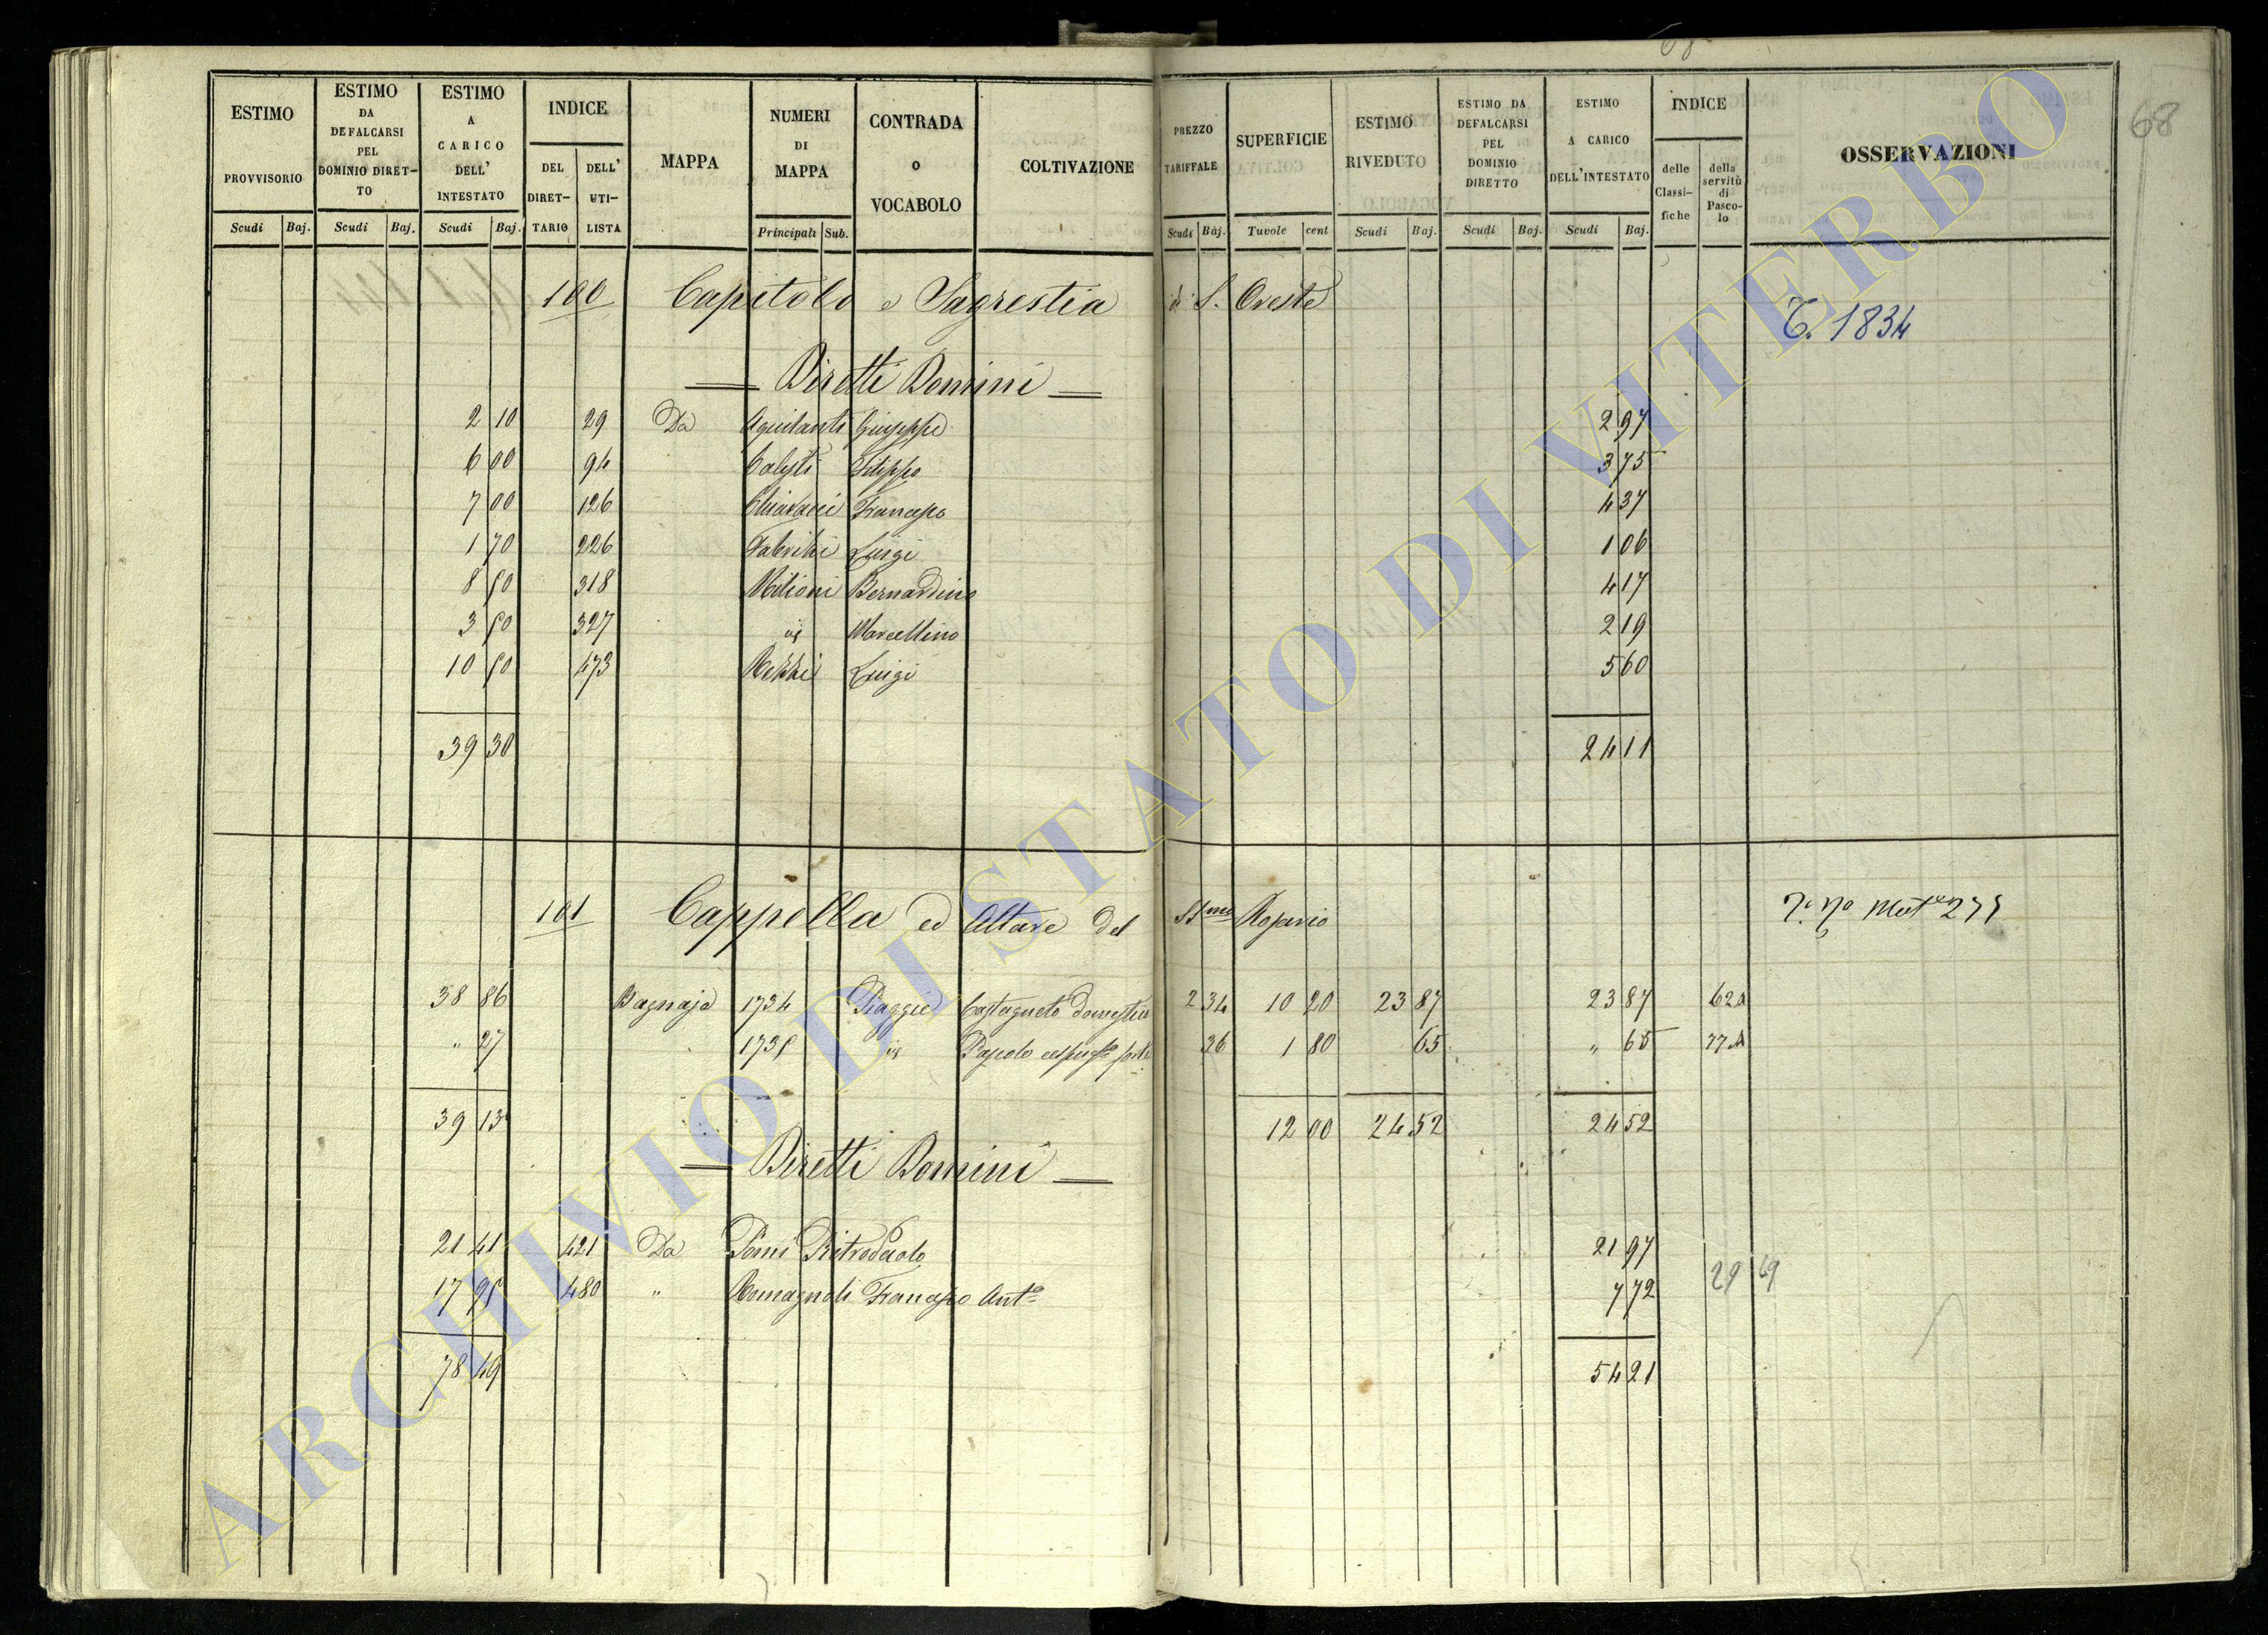 68
68
ESTIMO PROVVISORIO Scudi Baj.
ESTIMO DA DEFALCARSI PEL DOMINIO DIRET-TO Scudi Baj.
ESTIMO A CARICO DELL' INTESTATO Scudi Baj.
INDICE DEL DIRET-TARIO DELL' UTI-LISTA
MAPPA
NUMERI DI MAPPA Principali Sub.
CONTRADA o VOCABOLO
COLTIVAZIONE
PREZZO TARIFFALE Scudi Baj.
SUPERFICIE Tavole cent
ESTIMO RIVEDUTO Scudi Baj.
ESTIMO DA DEFALCARSI PEL DOMINIO DIRETTO Scudi Baj.
ESTIMO A CARICO DELL'INTESTATO Scudi Baj.
INDICE delle Classi-fiche della servitù di Pasco-lo
OSSERVAZIONI
100 Capitolo e Sagrestia di S. Oreste T. 1834
— Diretti Domini —
2 10 29 Da Aquilanti Giuseppe 2 97
6 00 94 Calisti Filippo 3 75
7 00 126 Chiaravei Francesco 4 37
1 70 226 Fabrizi Luigi 1 06
8 50 318 Milioni Bernardino 4 17
3 50 327 id Marcellino 2 19
10 50 473 Luigi 5 60
39 30 24 11
101 Cappella ed Altare del SSmo Rosario
38 86 Bagnaja 1734 Piaggie Castagneto domestico 2 34 10 20 23 87 23 87 62
" 27 1735 id Pascolo 36 1 80 65 " 65 77
39 13 12 00 24 52 24 52
— Diretti Domini —
21 41 421 Da Pomi Pietro Paolo 21 97
17 95 480 " Romagnoli Francesco Anto 7 72 29 69
78 49 54 21
ARCHIVIO DI STATO DI VITERBO